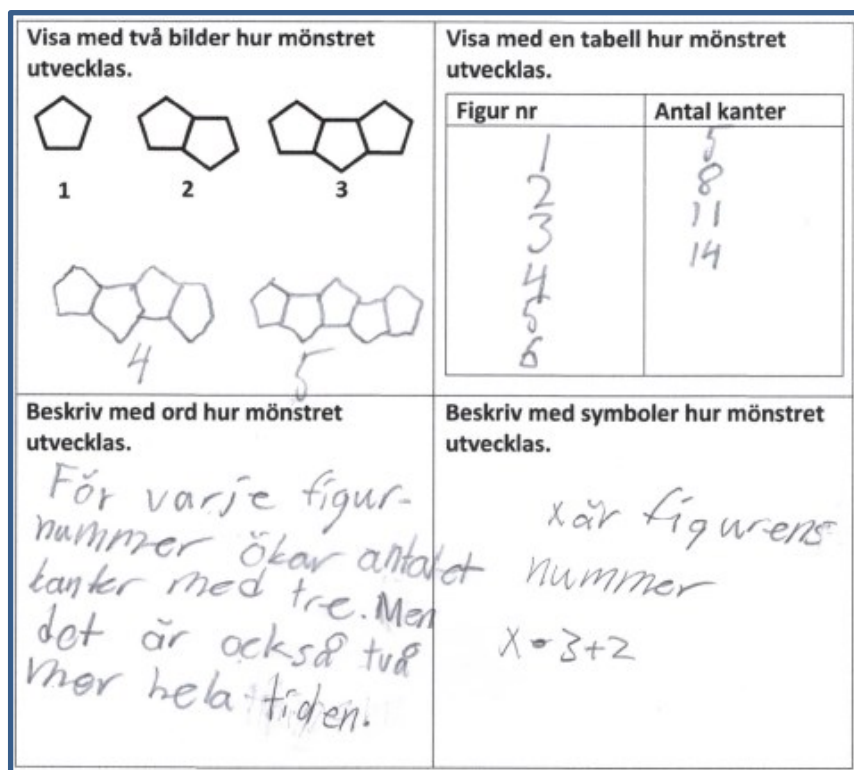 Visa med två bilder hur mönstret
utvecklas.
1 2 3
4 5
Visa med en tabell hur mönstret
utvecklas.
Figur nr Antal kanter
1 5
2 8
3 11
4 14
5
6
Beskriv med ord hur mönstret
utvecklas.
För varje figur-
nummer ökar antalet
kanter med tre. Men
det är också två
mer hela tiden.
Beskriv med symboler hur mönstret
utvecklas.
x är figurens
nummer
x•3+2